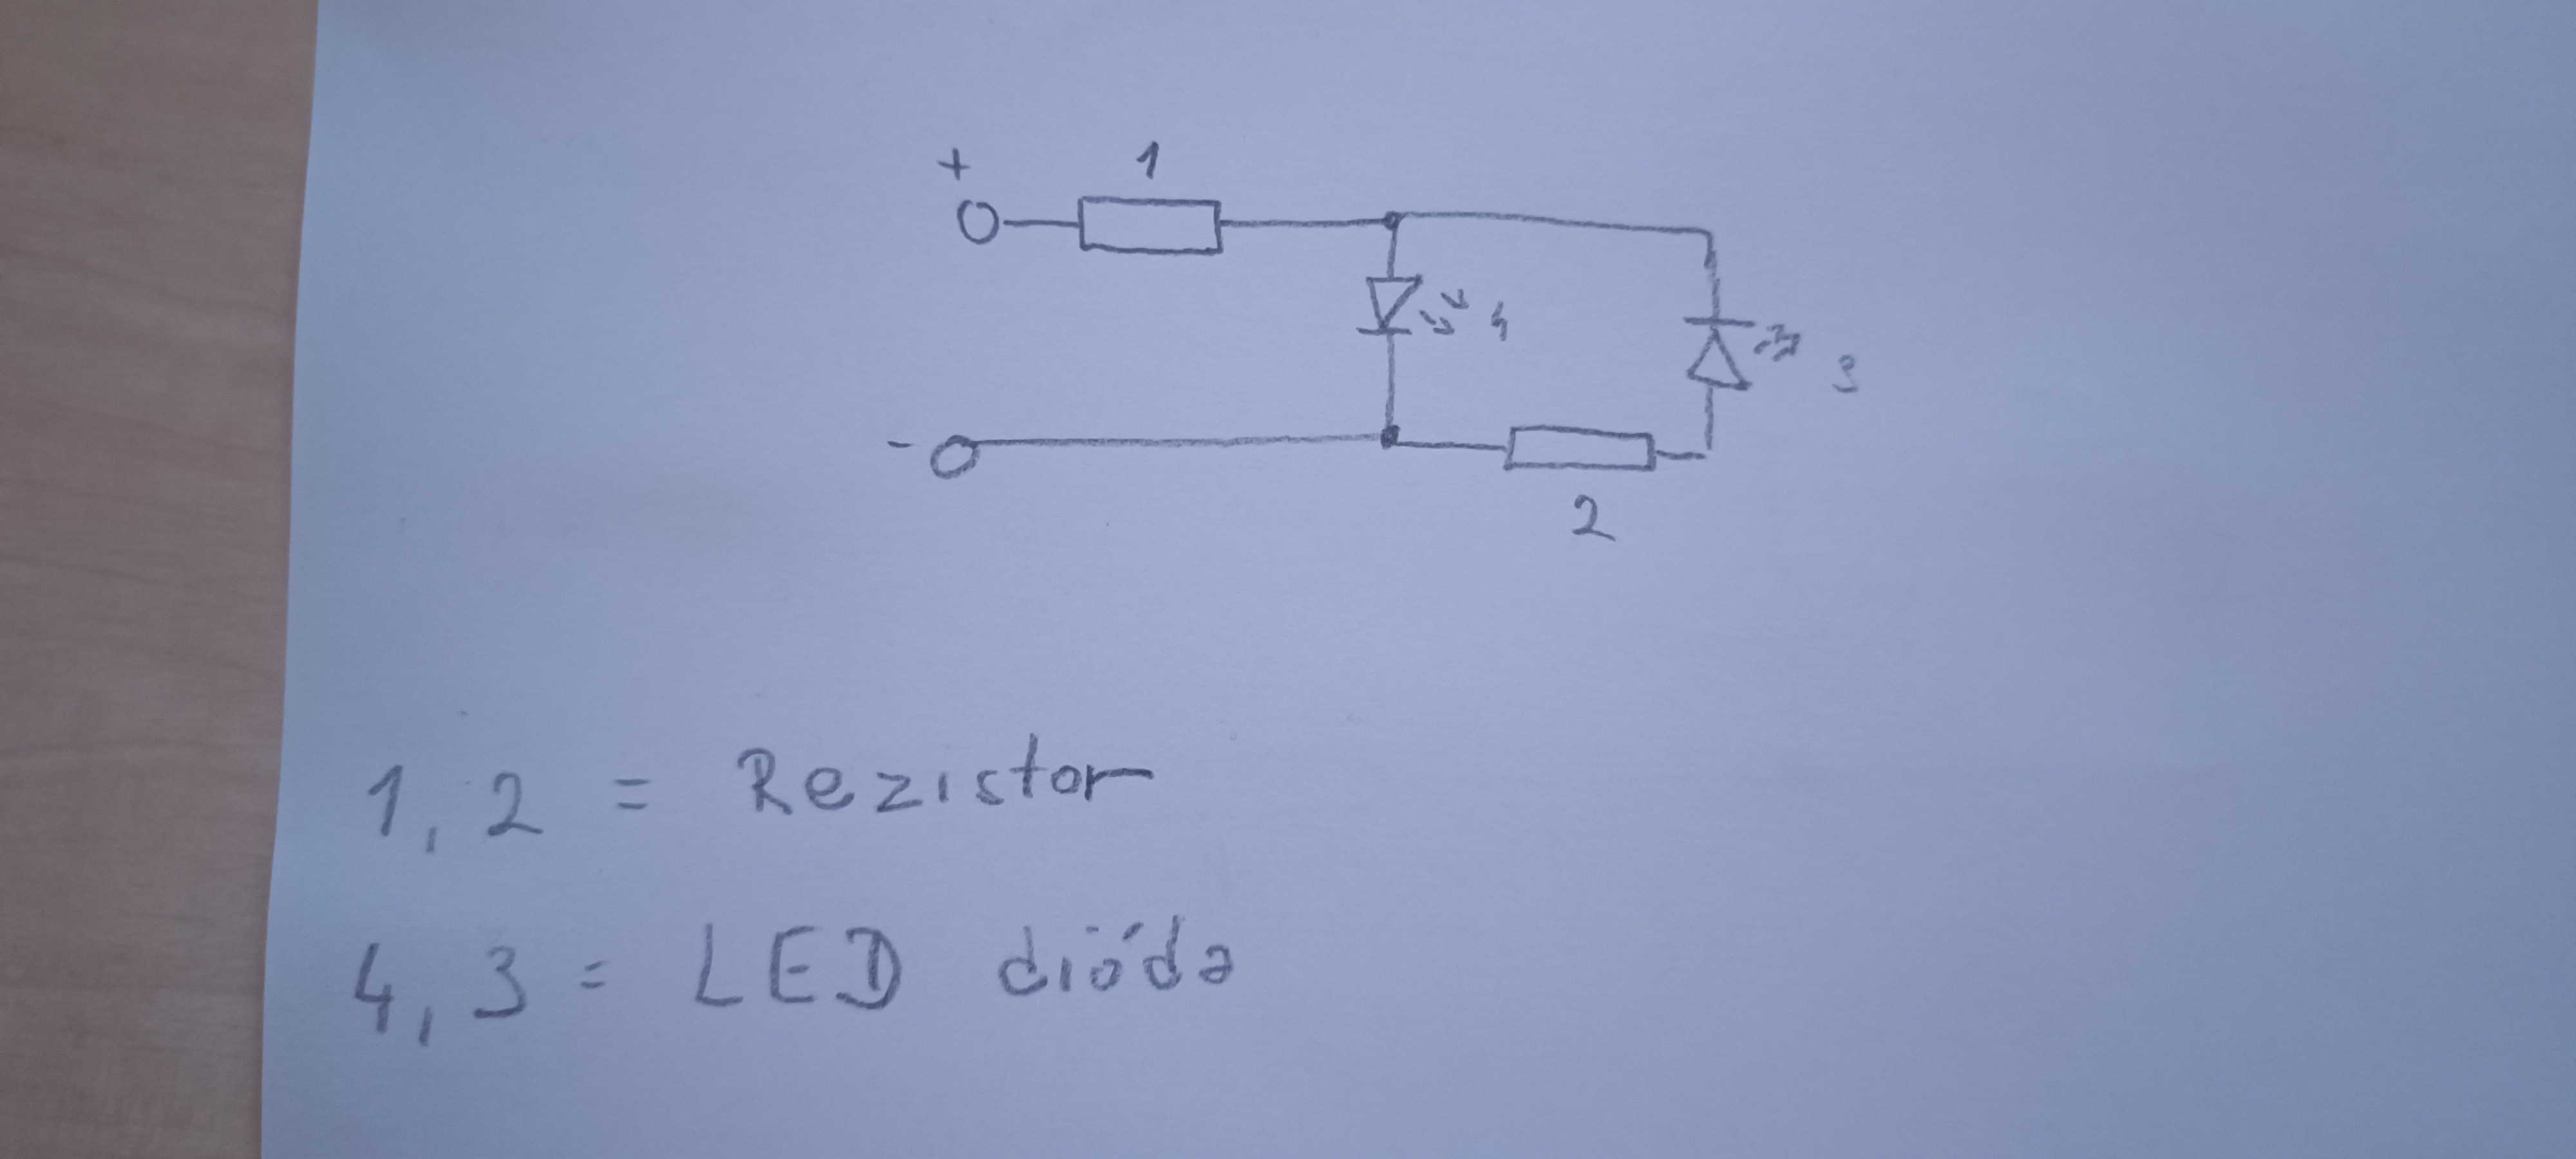 + 1
4
3
-
2
1, 2 = Rezistor
4, 3 = LED dióda